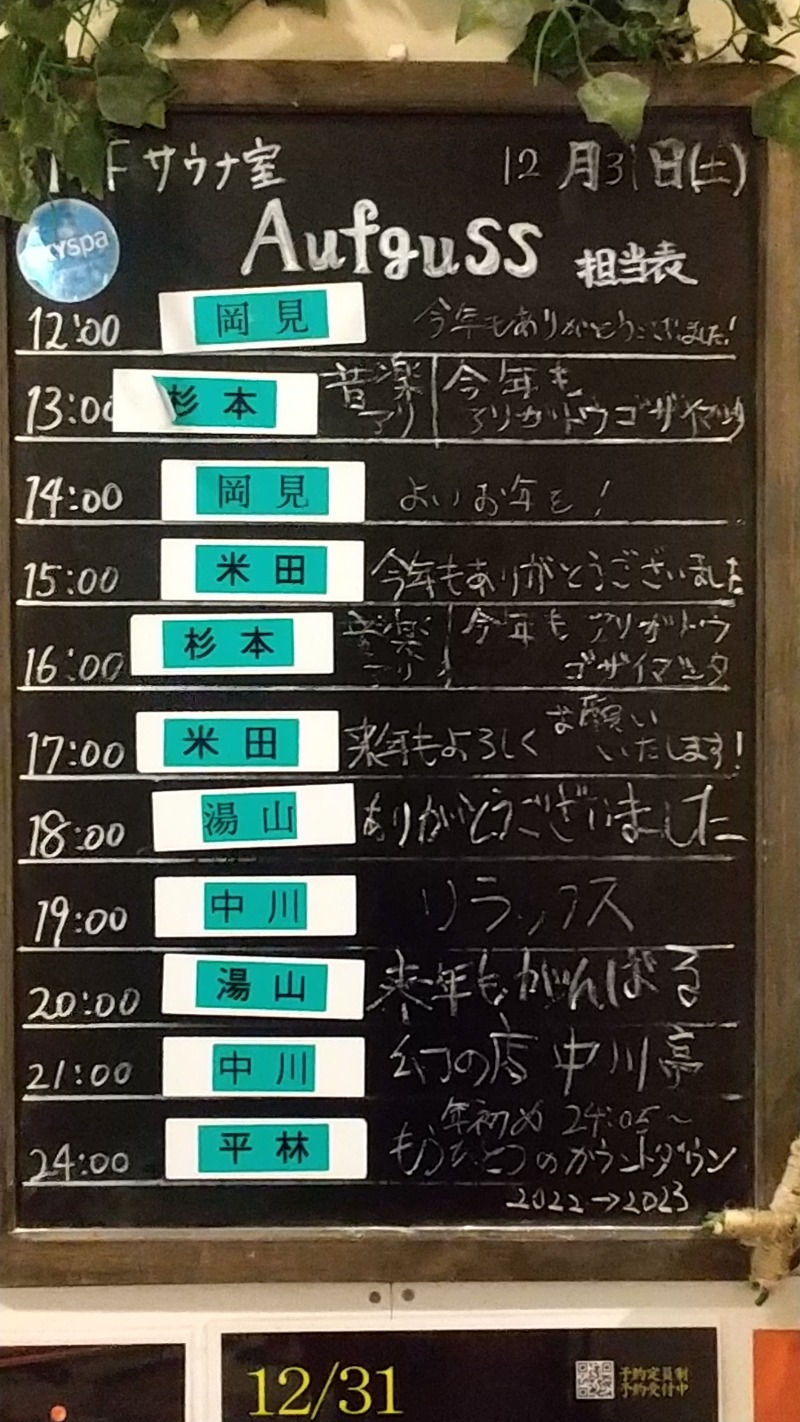 F サウナ室 12月31日(土)
Aufguss 担当表
skyspa
12:00 岡見 今年もありがとうございました!
13:00 杉本 音楽アリ 今年も
アリガトウゴザイマシタ
14:00 岡見 よいお年を!
15:00 米田 今年もありがとうございました
16:00 杉本 音楽アリ 今年も アリガトウ
ゴザイマシタ
17:00 米田 来年もよろしく お願い
いたします!
18:00 湯山 ありがとうございました
19:00 中川 リラックス
20:00 湯山 来年もがんばる
21:00 中川 幻の店 中川亭
年初め 24:05~
24:00 平林 もうひとつのカウントダウン
2022→2023
12/31
予約定員制
予約受付中